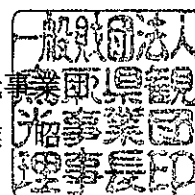 一般財団法人
事業団県観
光事業団
理事長印